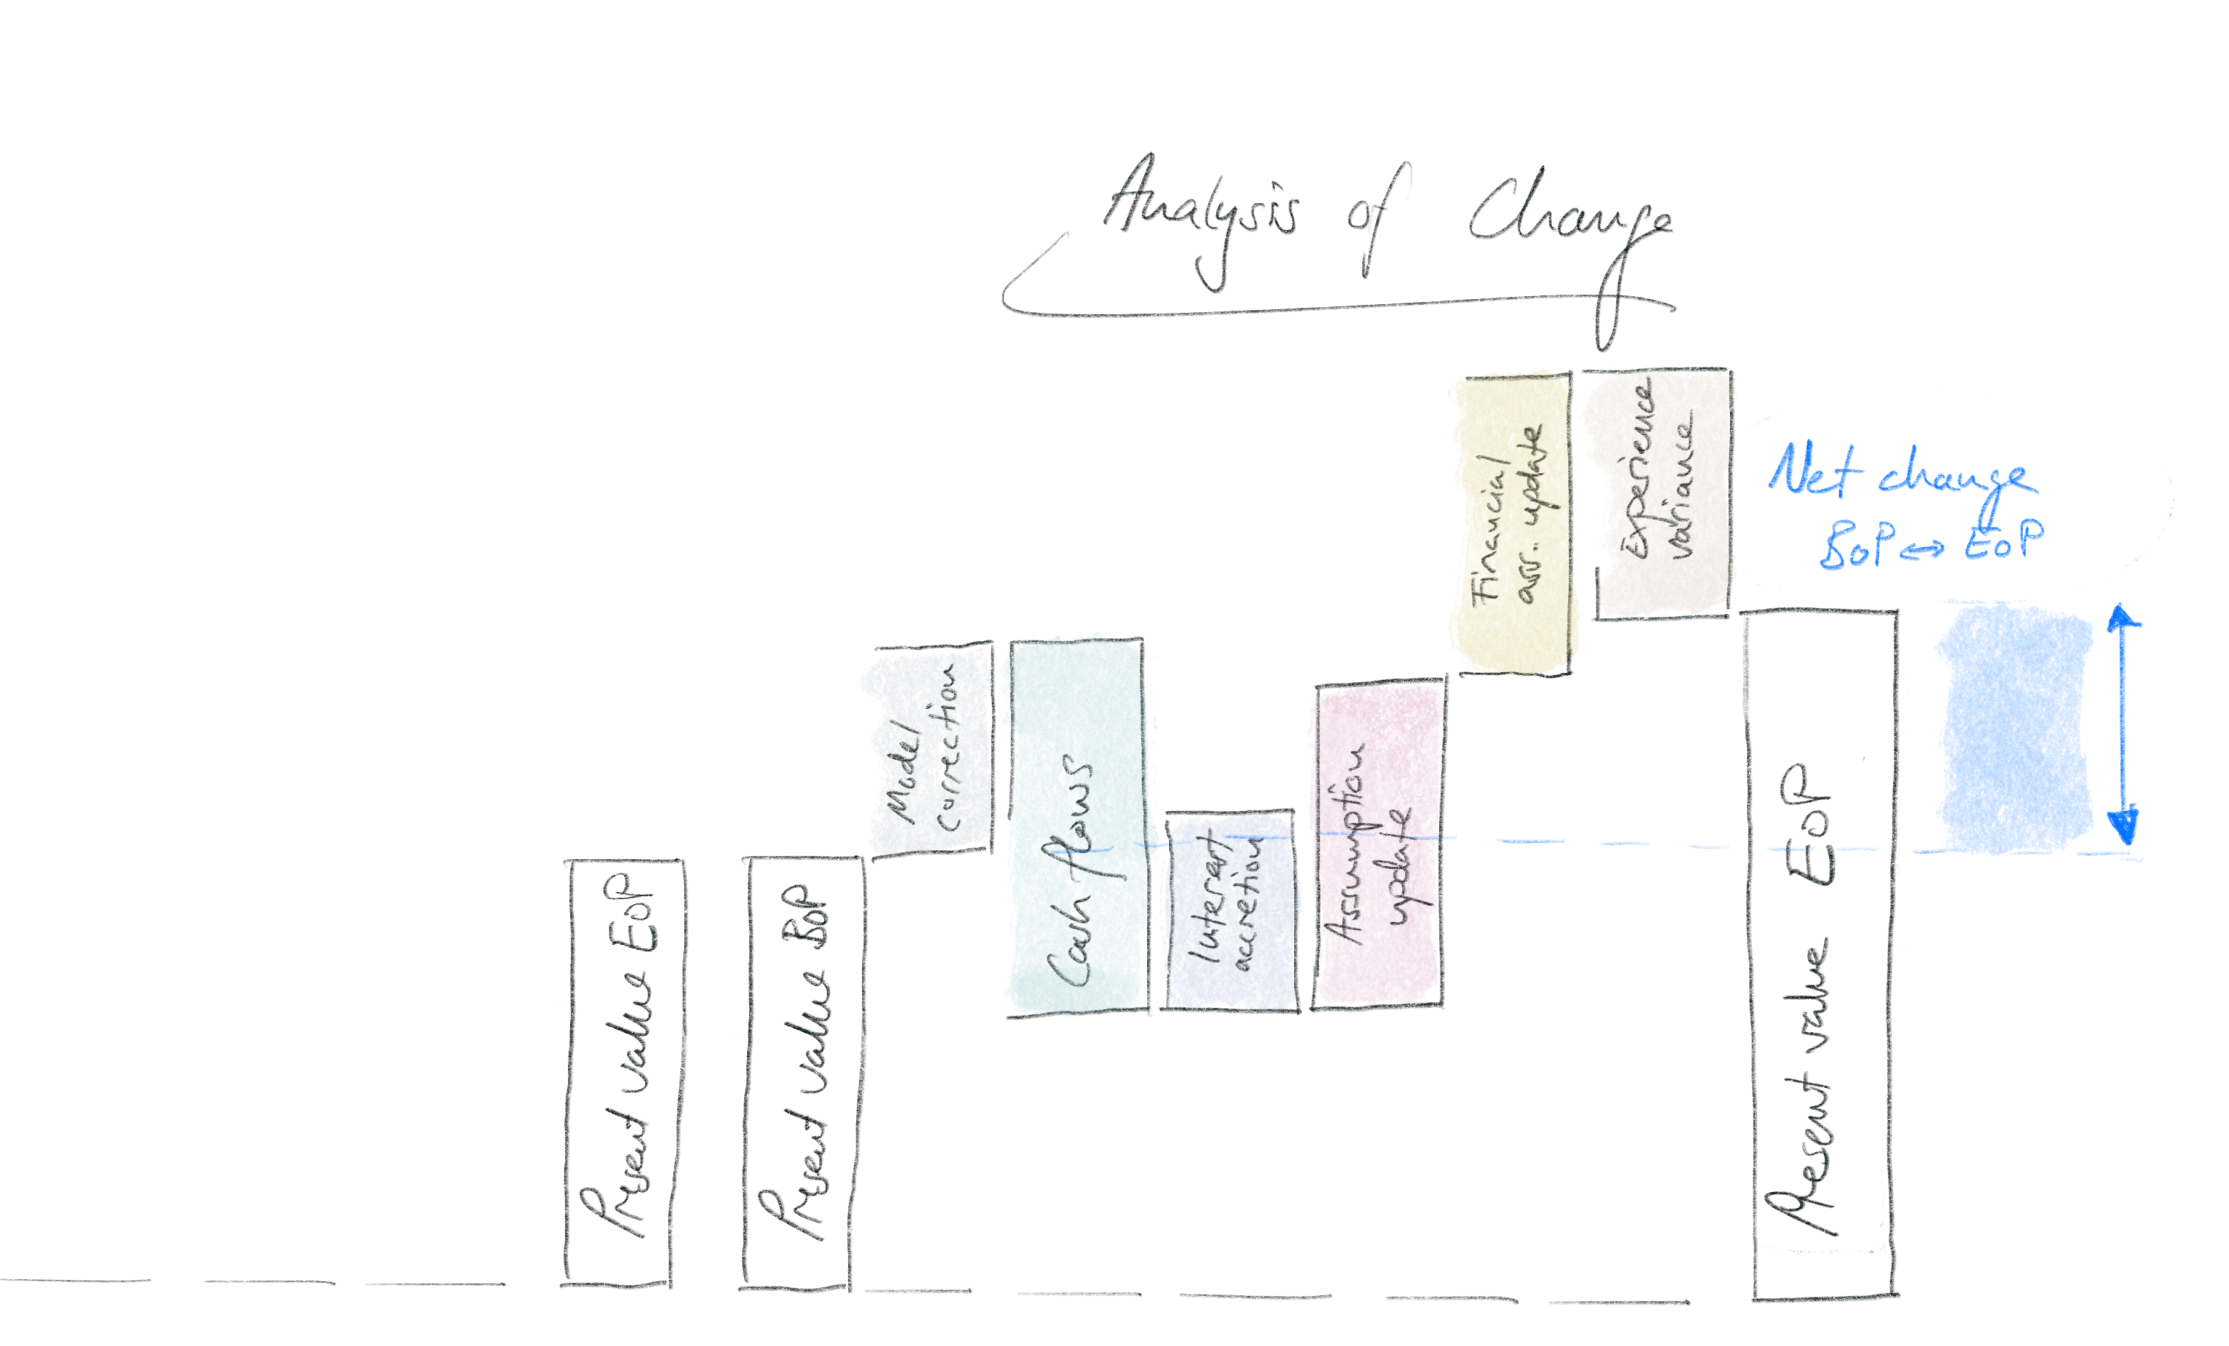 Analysis of Change
Present value EoP
Present value BoP
Model
correction
Cash flows
Interest
accretion
Assumption
update
Financial
ass. update
Experience
variance
Present value EoP
Net change
BoP ↔ EoP